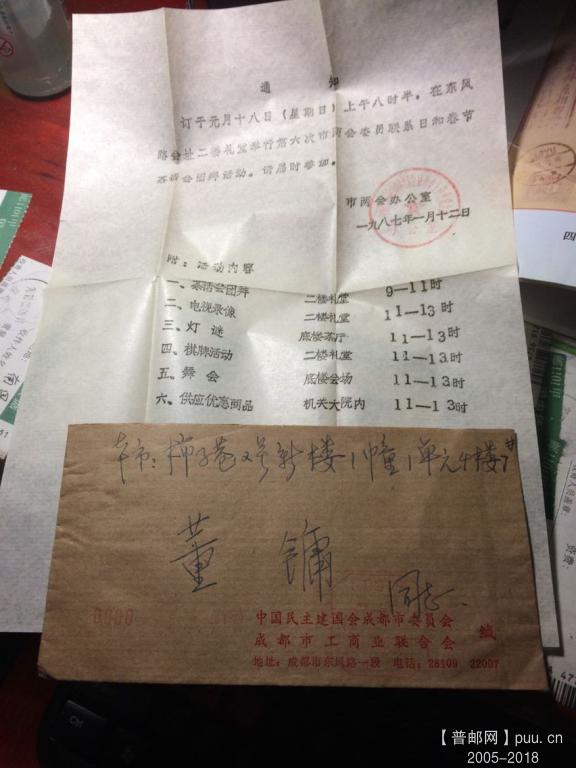 通 知
订于元月十八日（星期日）上午八时半，在东风
路会址二楼礼堂举行第六次市两会委员联系日和春节
茶话会团拜活动。请届时参加。
市两会办公室
一九八七年一月十二日
附：活动内容
一、茶话会团拜 二楼礼堂 9—11时
二、电视录像 二楼礼堂 11—13时
三、灯谜 底楼茶厅 11—13时
四、棋牌活动 二楼礼堂 11—13时
五、舞会 底楼会场 11—13时
六、供应优惠商品 机关大院内 11—13时
本市：柿子巷2号新楼1幢1单元4楼7#
董 镛 同志
中国民主建国会成都市委员会
成都市工商业联合会 缄
地址：成都市东风路一段 电话：28109 22007
【普邮网】puu.cn
2005-2018